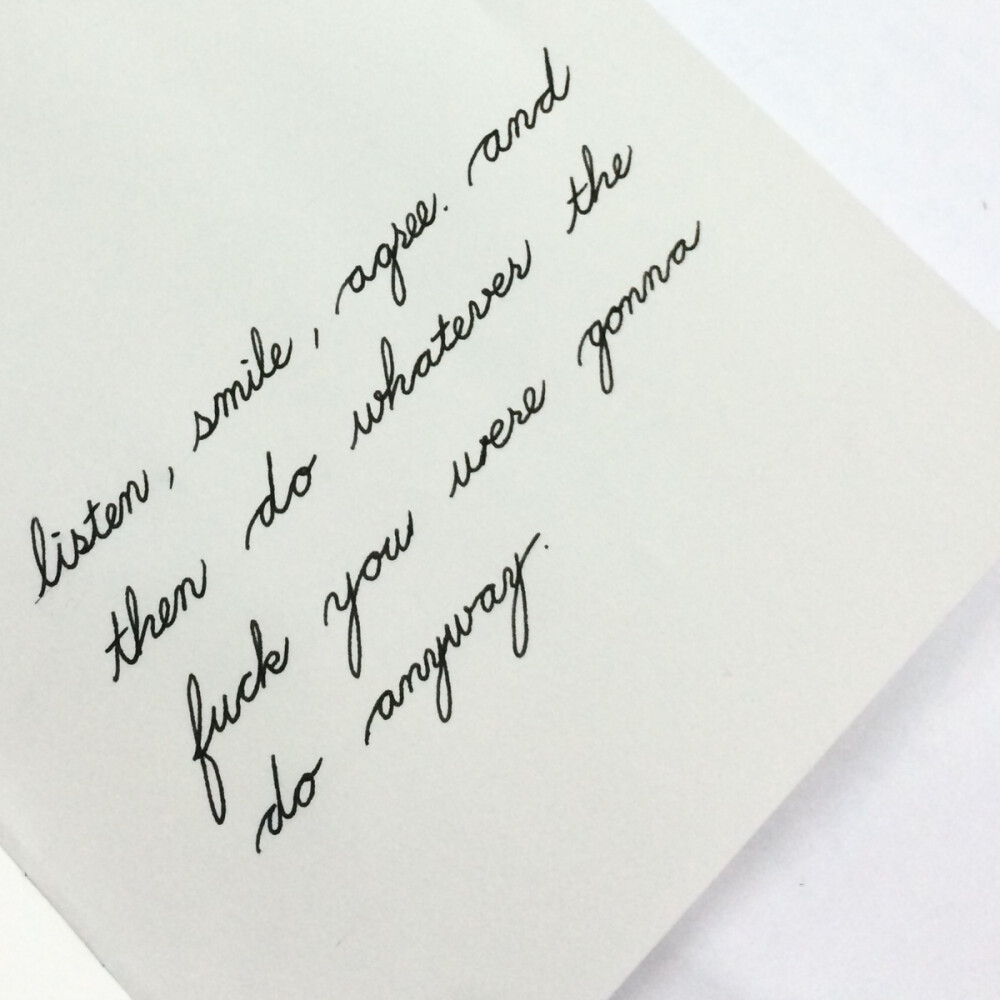 listen, smile, agree. and
then do whatever the
fuck you were gonna
do anyway.